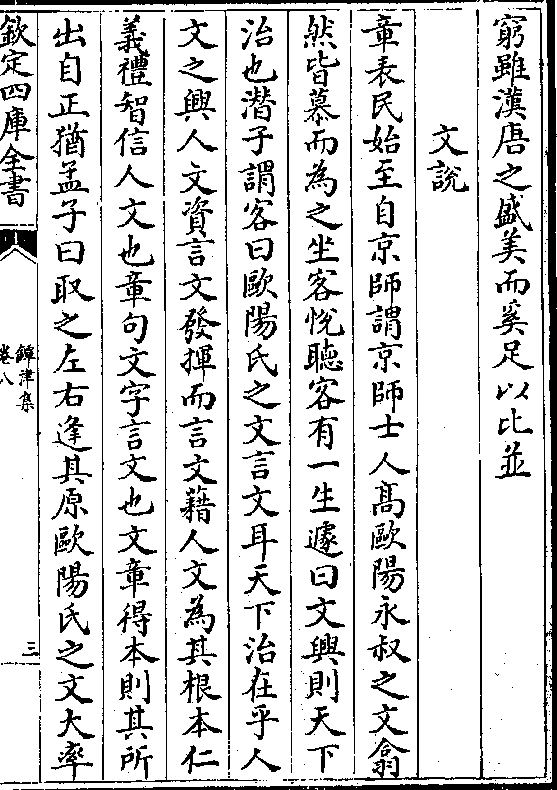 窮雖漢唐之盛美而奚足以比並
文說
章表民始至自京師謂京師士人髙歐陽永叔之文翕
然皆慕而為之坐客悅聽客有一生遽曰文興則天下
治也潛子謂客曰歐陽氏之文言文耳天下治在乎人
文之興人文資言文發揮而言文藉人文為其根本仁
義禮智信人文也章句文字言文也文章得本則其所
出自正猶孟子曰取之左右逢其原歐陽氏之文大率
欽定四庫全書
鐔津集
卷八
三